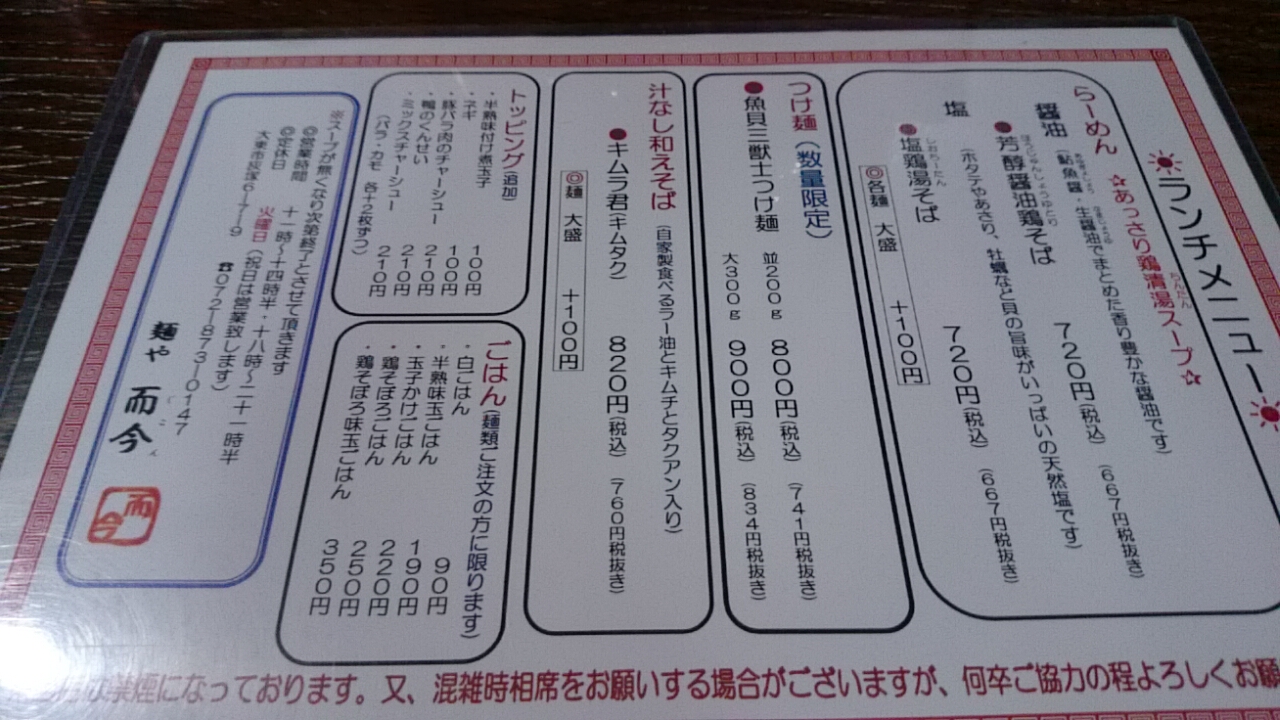 ランチメニュー
らーめん ☆あっさり鶏清湯スープ☆
醤油 (鮎魚醤・生醤油でまとめた香り豊かな醤油です)
●芳醇醤油鶏そば 720円(税込) (667円税抜き)
塩 (ホタテやあさり、牡蠣など貝の旨味がいっぱいの天然塩です)
●塩鶏湯そば 720円(税込) (667円税抜き)
◎各麺 大盛 +100円
つけ麺(数量限定)
●魚貝三獣士つけ麺 並200g 800円(税込) (741円税抜き)
大300g 900円(税込) (834円税抜き)
汁なし和えそば (自家製食べるラー油とキムチとタクアン入り)
●キムラ君(キムタク) 820円(税込) (760円税抜き)
◎麺 大盛 +100円
トッピング(追加)
・半熟味付け煮玉子 100円
・ネギ 100円
・豚バラ肉のチャーシュー 210円
・鴨のくんせい 210円
・ミックスチャーシュー 210円
(バラ・カモ 各+2枚ずつ)
ごはん(麺類ご注文の方に限ります)
・白ごはん 90円
・半熟味玉ごはん 190円
・玉子かけごはん 220円
・鶏そぼろごはん 250円
・鶏そぼろ味玉ごはん 350円
※スープが無くなり次第終了とさせて頂きます
◎営業時間 十一時〜十四時半・十八時〜二十一時半
◎定休日 火曜日(祝日は営業致します)
大東市 6-7-9 ☎072-873-0147
麺や 而今
而今
禁煙になっております。又、混雑時相席をお願いする場合がございますが、何卒ご協力の程よろしくお願